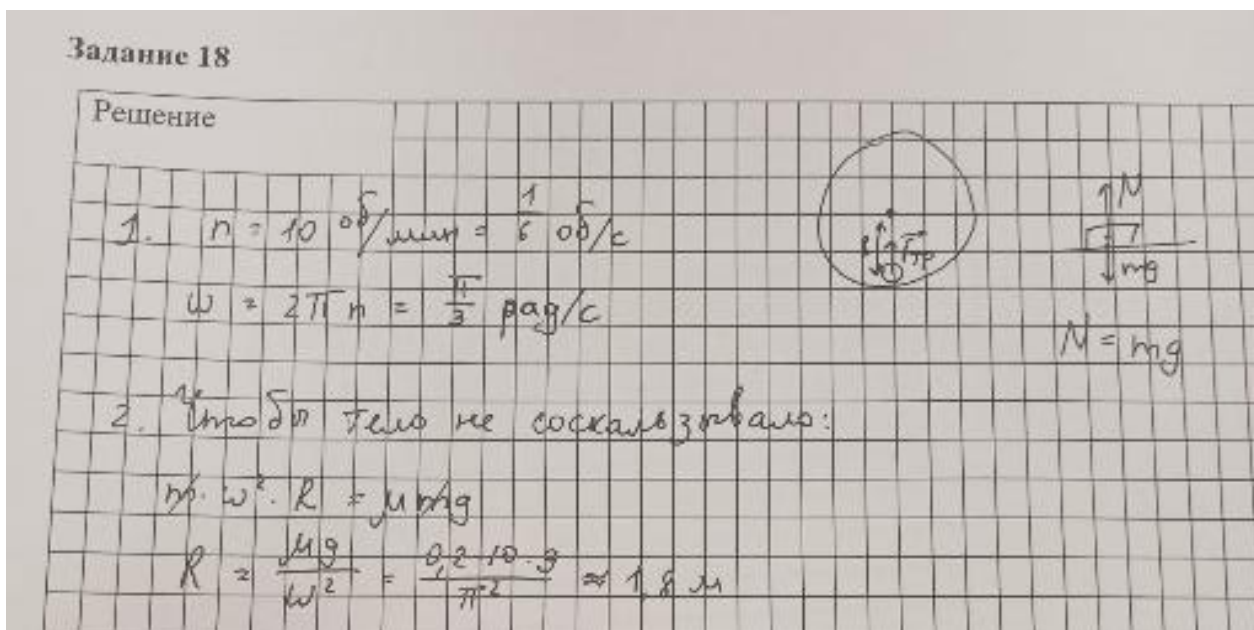 Задание 18
Решение
1. n = 10 об/мин = 1/6 об/с
ω = 2πn = π/3 рад/с
R Fтр
N
mg
N = mg
2. Чтобы тело не соскальзывало:
m · ω² · R = μmg
R = μg/ω² = 0,2·10·9/π² ≈ 1,8 м